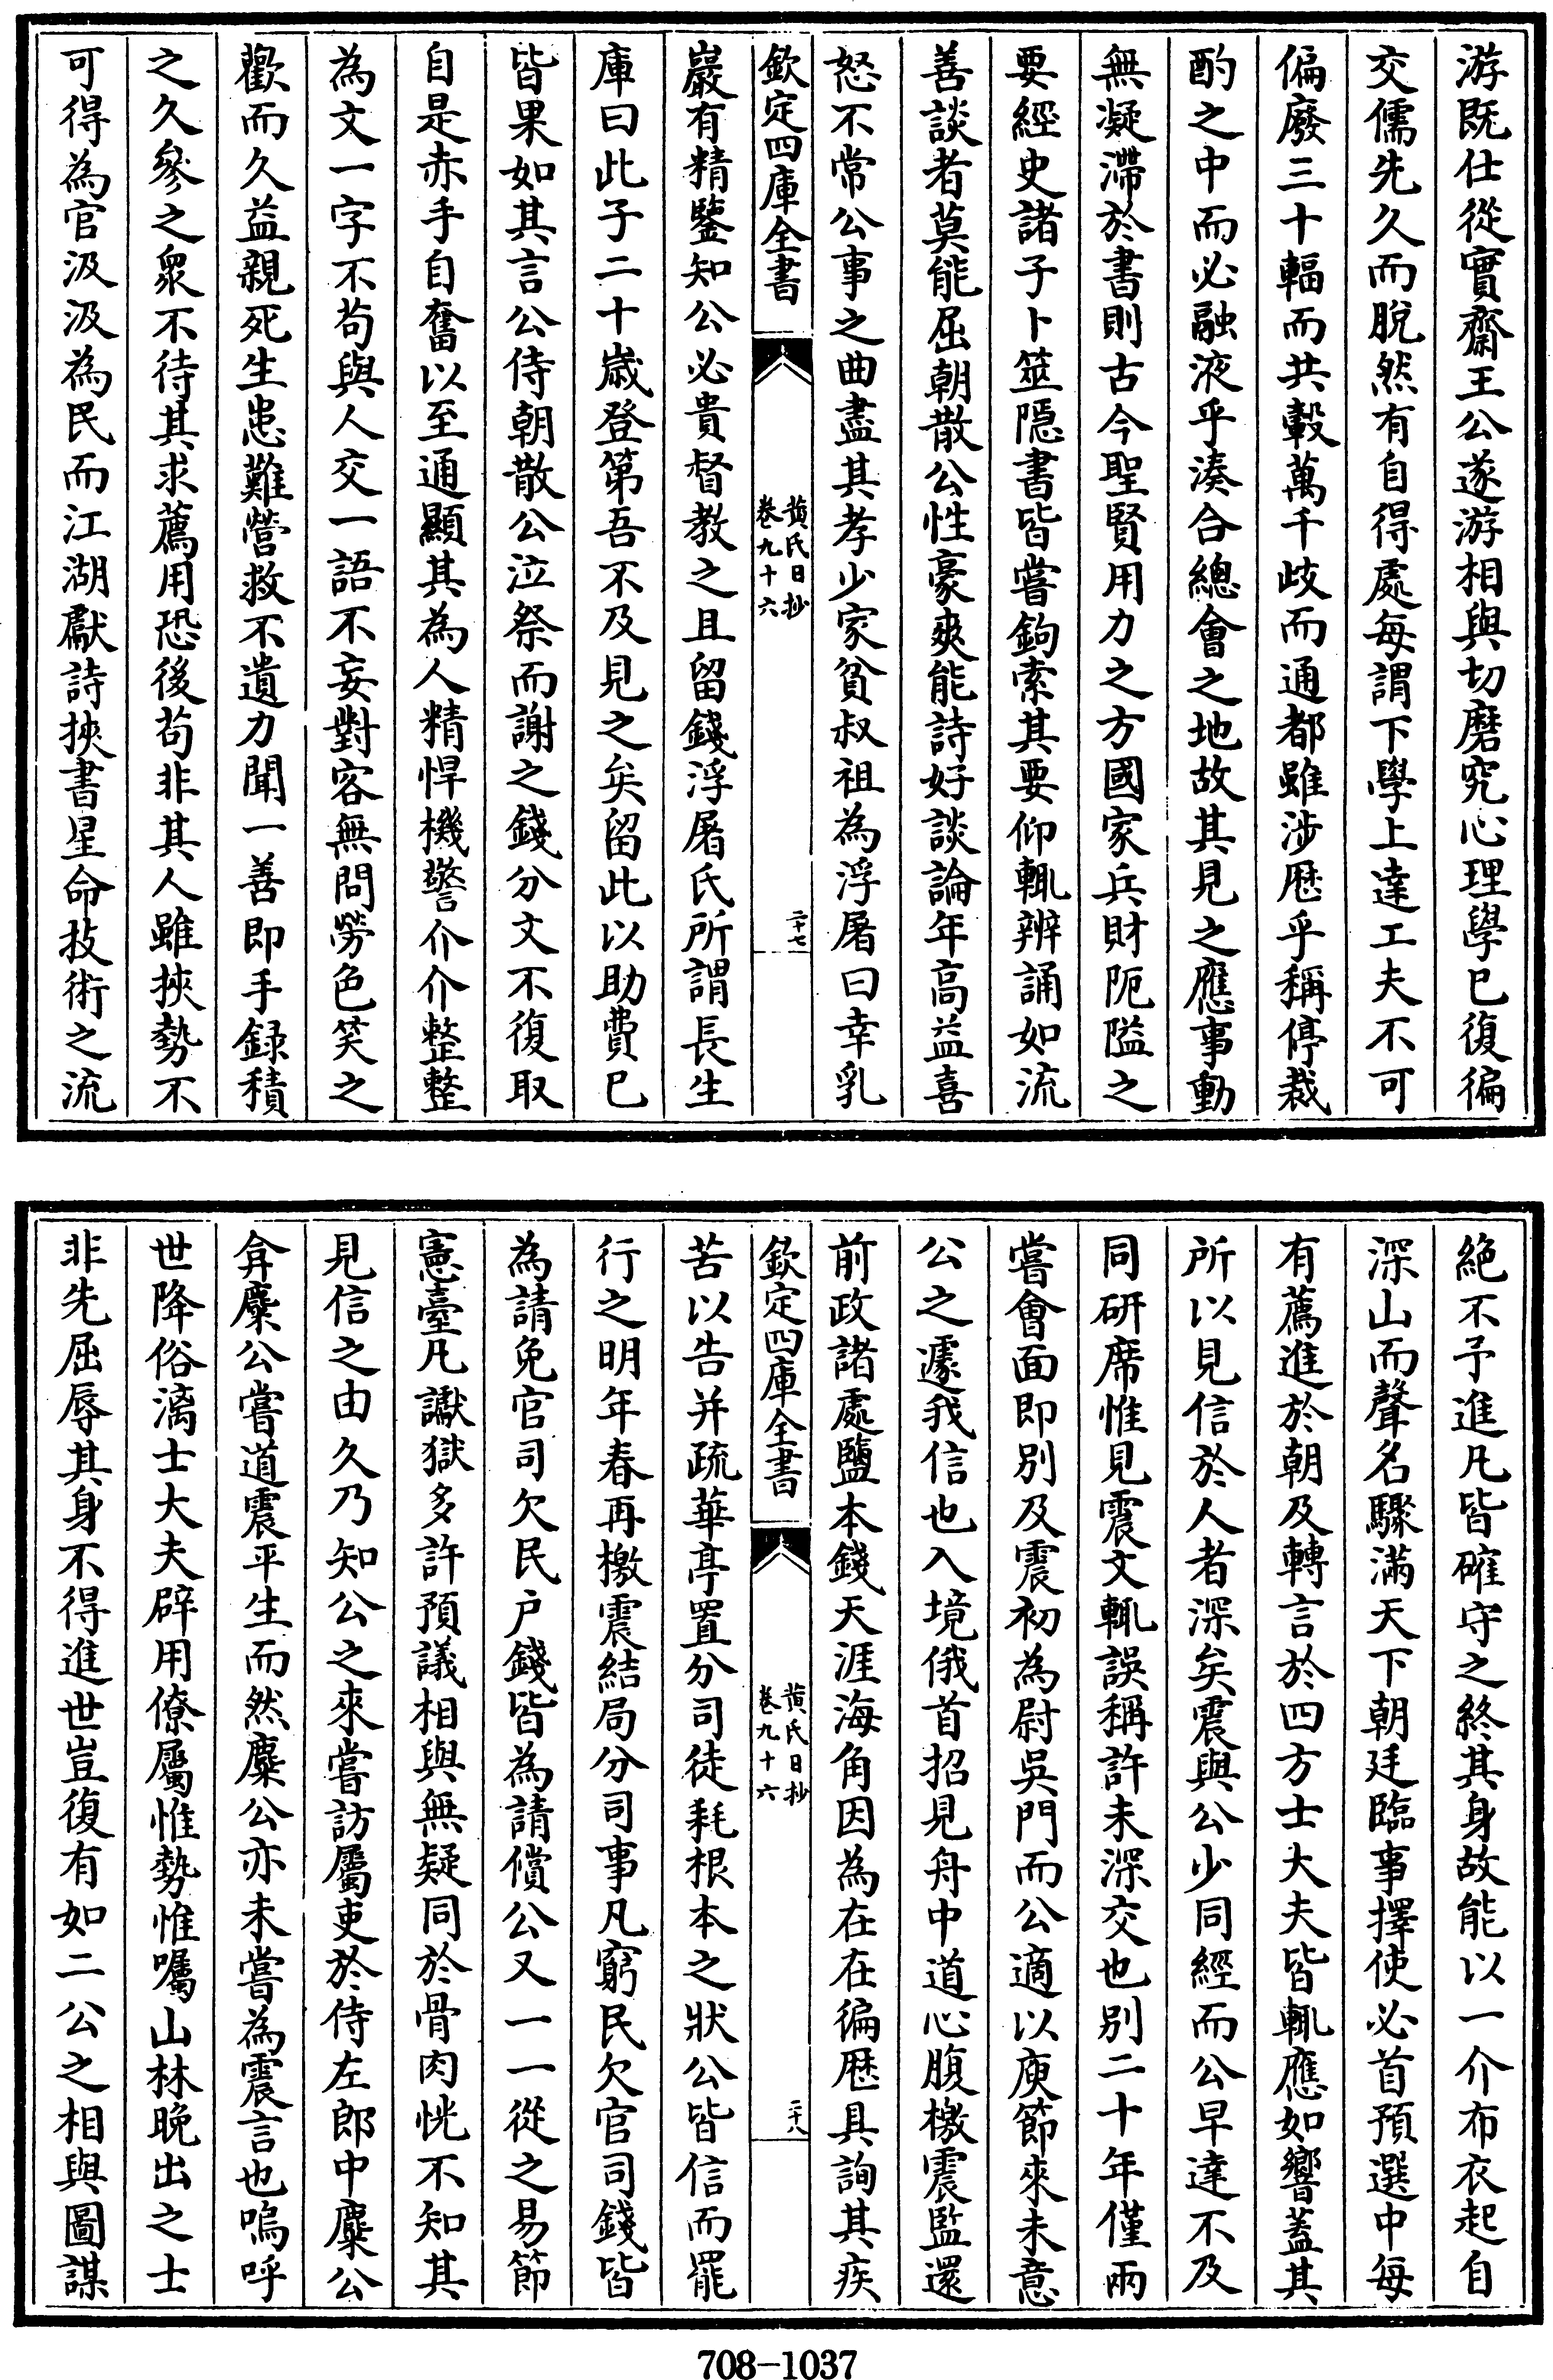 游既仕從實齋王公遂游相與切磨究心理學已復徧
交儒先久而脫然有自得處每謂下學上達工夫不可
偏廢三十輻而共轂萬千歧而通都雖涉歷乎稱停裁
酌之中而必融液乎湊合總會之地故其見之應事動
無凝滯於書則古今聖賢用力之方國家兵財阨隘之
要經史諸子卜筮隱書皆嘗鉤索其要仰輒辨誦如流
善談者莫能屈朝散公性豪爽能詩好談論年高益喜
怒不常公事之曲盡其孝少家貧叔祖為浮屠曰幸乳
欽定四庫全書
黃氏日抄
卷九十六
二十七
巖有精鑒知公必貴督教之且留錢浮屠氏所謂長生
庫曰此子二十歲登第吾不及見之矣留此以助費已
皆果如其言公侍朝散公泣祭而謝之錢分文不復取
自是赤手自奮以至通顯其為人精悍機警介介整整
為文一字不苟與人交一語不妄對客無問勞色笑之
歡而久益親死生患難營救不遺力聞一善即手録積
之久參之衆不待其求薦用恐後苟非其人雖挾勢不
可得為官汲汲為民而江湖獻詩挾書星命技術之流
絕不予進凡皆確守之終其身故能以一介布衣起自
深山而聲名驟滿天下朝廷臨事擇使必首預選中每
有薦進於朝及轉言於四方士大夫皆輒應如響蓋其
所以見信於人者深矣震與公少同經而公早達不及
同研席惟見震文輒誤稱許未深交也別二十年僅兩
嘗會面即別及震初為尉吳門而公適以庾節來未意
公之遽我信也入境俄首招見舟中道心腹檄震監還
前政諸處鹽本錢天涯海角因為在在徧歷具詢其疾
欽定四庫全書
黃氏日抄
卷九十六
二十八
苦以告并疏華亭置分司徒耗根本之狀公皆信而罷
行之明年春再檄震結局分司事凡窮民欠官司錢皆
為請免官司欠民户錢皆為請償公又一一從之易節
憲臺凡讞獄多許預議相與無疑同於骨肉恍不知其
見信之由久乃知公之來嘗訪屬吏於侍左郎中麋公
弇麋公嘗道震平生而然麋公亦未嘗為震言也嗚呼
世降俗漓士大夫辟用僚屬惟勢惟囑山林晚出之士
非先屈辱其身不得進世豈復有如二公之相與圖謀
708-1037